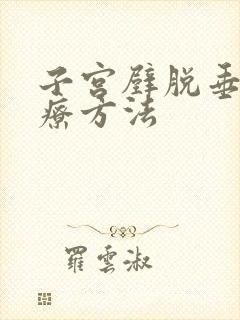 子宫壁脱垂
療方法
羅雲淑